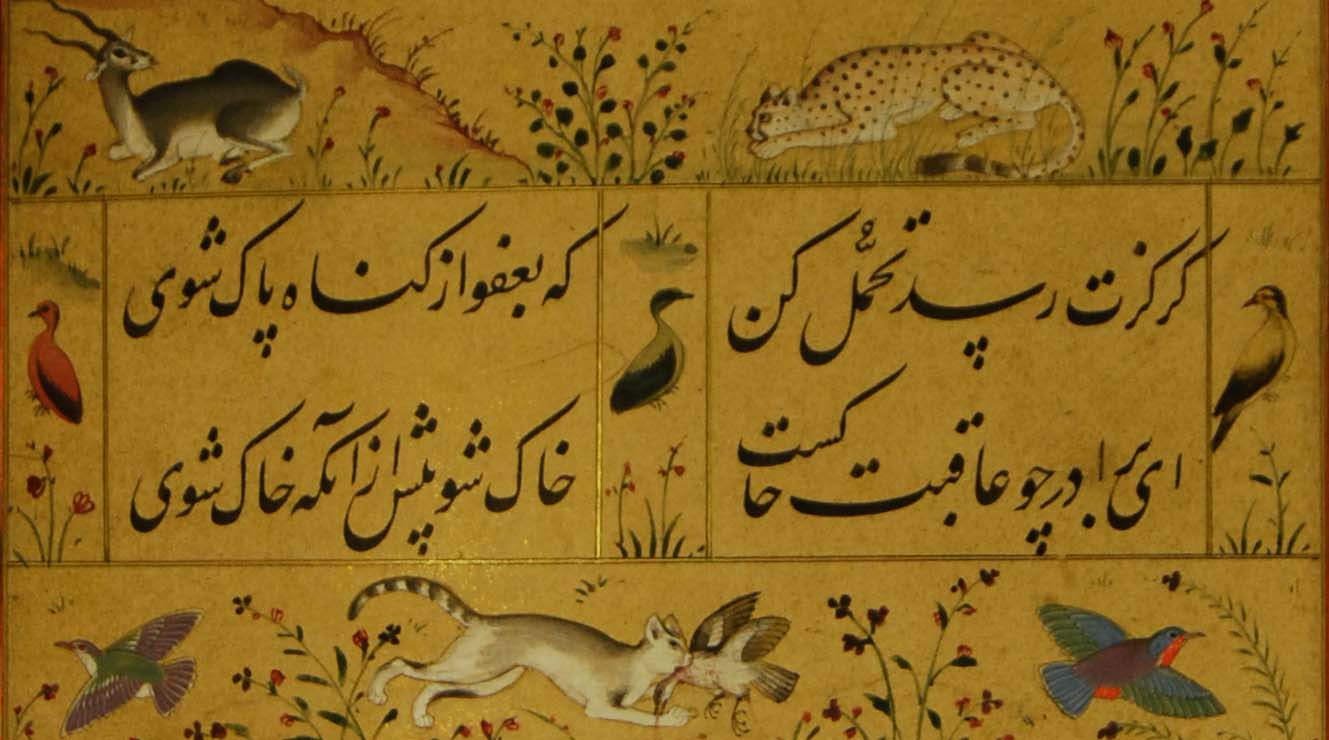 کر کزندت رسد تحمُّل کن
که بعفو از کناه پاک شوی
ای برادر چو عاقبت خاکست
خاک شو پیش از آنکه خاک شوی